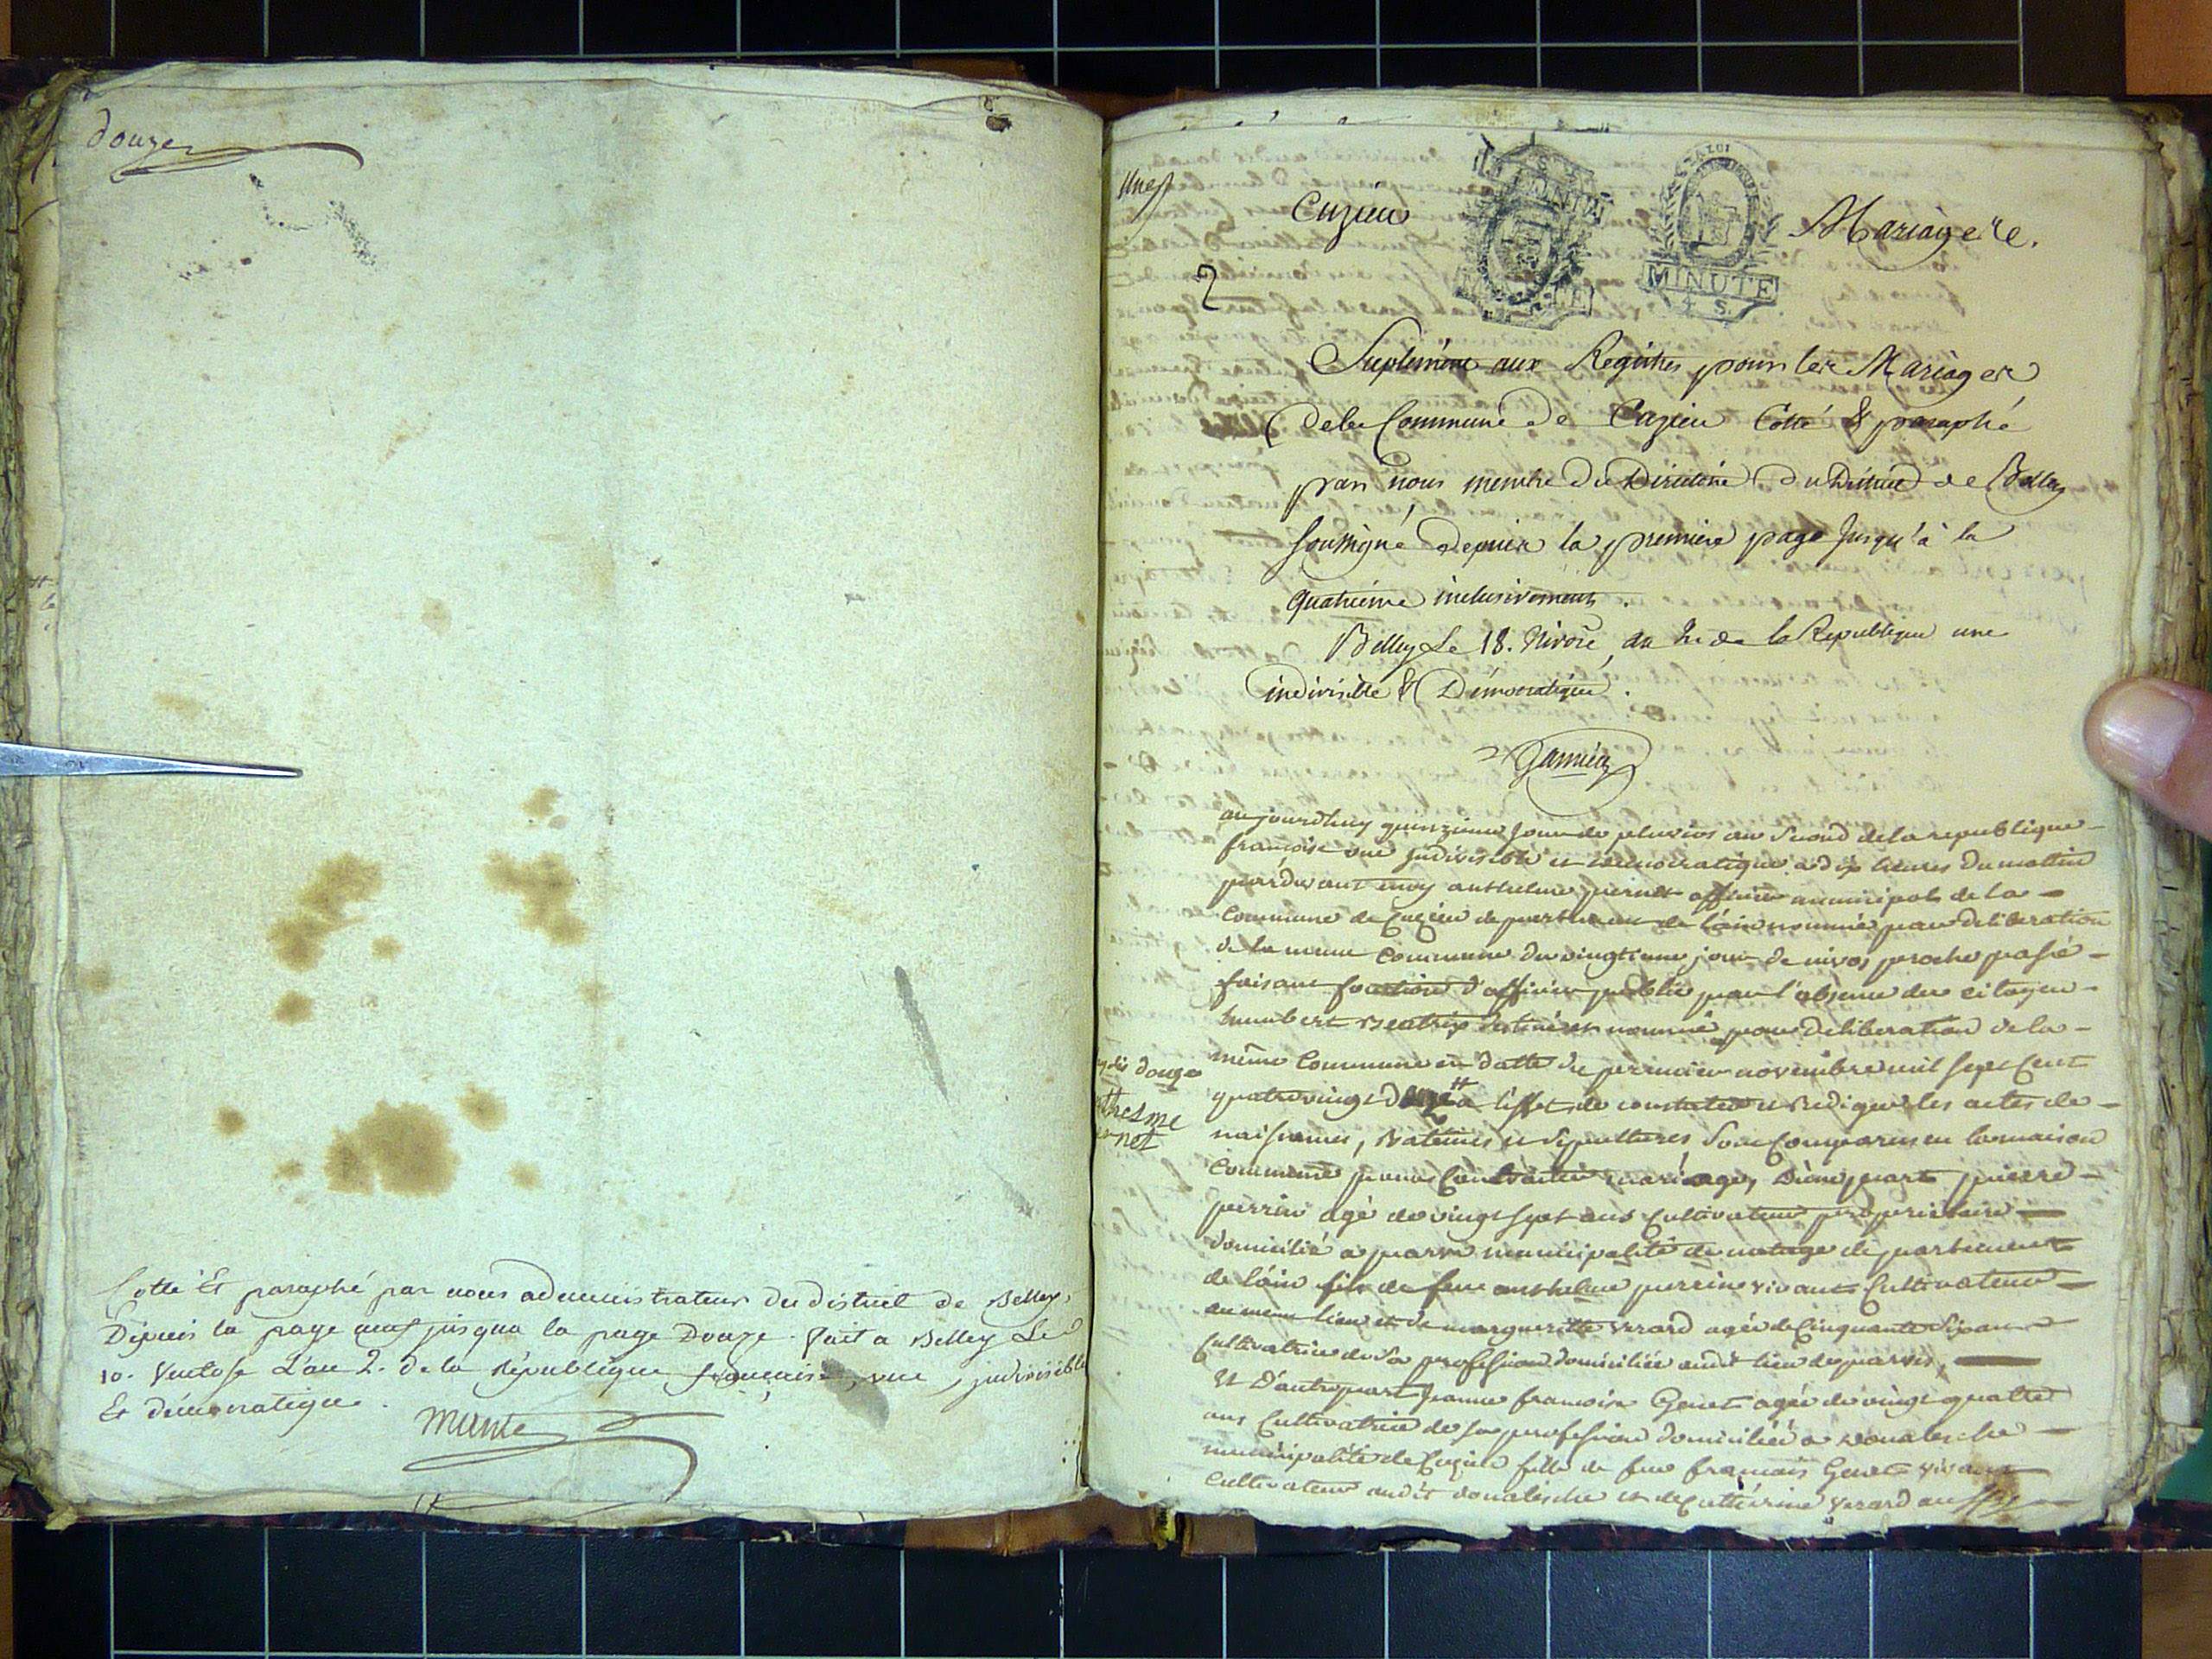 douze
Cotté Et paraphé par nous administrateur du district de Belley,
Depuis la page neuf jusqua la page Douze. fait a Belley Le
10. Ventose L'an 2. de la République francaise, une, indivisible
Et démocratique.
une
Cuzieu
Mariages.
2
MINUTE
4 S.
Suplément aux Registres pour les Mariages
de la Commune de Cuzieu Cotté & paraphé
par nous membre du Directoire du District de Belley
soussigné depuis la premiere page jusqu'à la
quatrieme inclusivement.
Belley Le 18. Nivose, an 2e de la Republique une
indivisible & Démocratique.
aujourdhuy quinzieme jour de pluvios an second de la republique
francoise une indivisible et démocratique a dix heures du mattin
pardevant moy anthelme pernet officier municipal de la
Commune de Cuzieu departement de l'ain nommé par deliberation
de la meme Commune du vingtieme jour de nivos proche passé
faisant fonction d'officier public par l'absence du citoyen
humbert Beatrix destiné et nommé par deliberation de la
même Commune en datte du premier novembre mil sept Cent
quatrevingt douze a l'effet de constater et rediger les actes de
naissances, mariages et sepultures, sont Comparus en la maison
Commune pour Contracter mariage, D'une part pierre
perrin agé de vingt sept ans Cultivateur proprietaire
domicilié a parve municipalité de departement
de l'ain fils de feu anthelme perrin vivant Cultivateur
au meme lieu et de margueritte Verard agée de Cinquante six ans
Cultivatrice de sa profession domiciliée audit lieu de parves,
Et D'autre part jeanne francoise Genet agée de vingt quatre
ans Cultivatrice de sa profession domiciliée a
municipalité de Cuzieu fille de feu francois Genet vivant
Cultivateur audit et de Catherine Verard aussy
douze
thelme
net